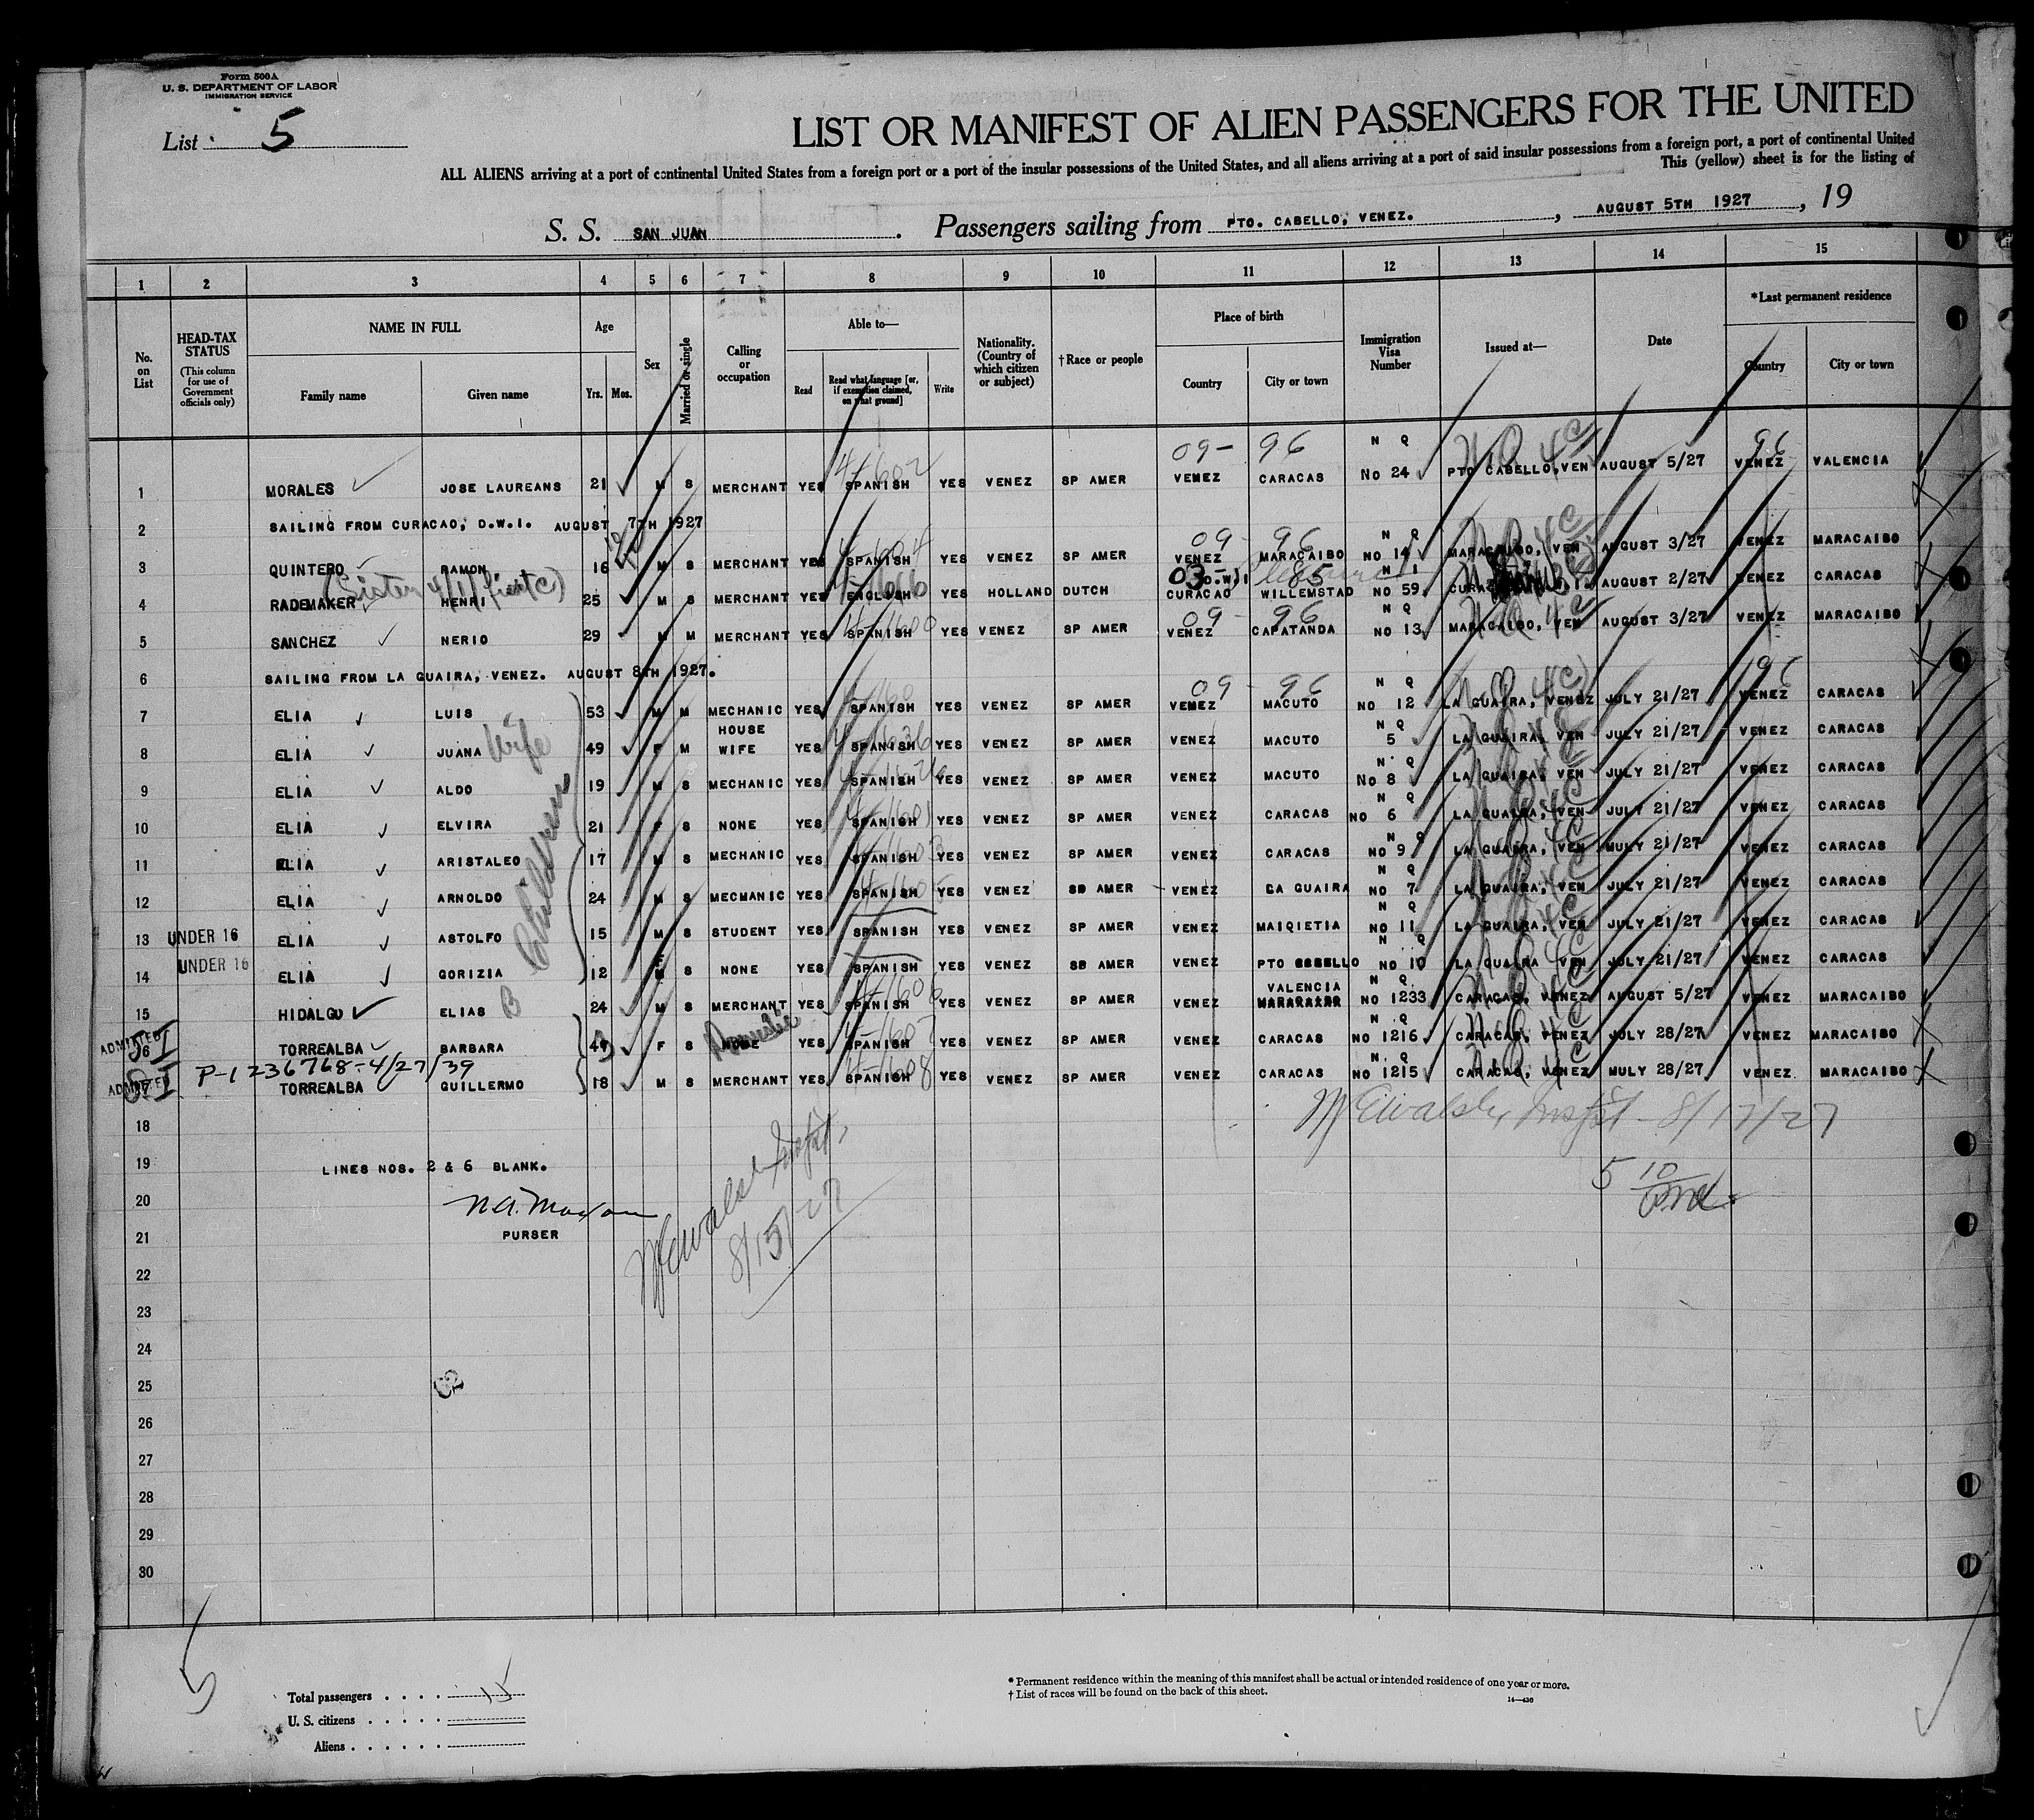 Form 500A
U. S. DEPARTMENT OF LABOR
IMMIGRATION SERVICE
List 5
LIST OR MANIFEST OF ALIEN PASSENGERS FOR THE UNITED
ALL ALIENS arriving at a port of continental United States from a foreign port or a port of the insular possessions of the United States, and all aliens arriving at a port of said insular possessions from a foreign port, a port of continental United
This (yellow) sheet is for the listing of
S. S. SAN JUAN. Passengers sailing from PTO. CABELLO, VENEZ., AUGUST 5TH 1927, 19
1 2 3 4 5 6 7 8 9 10 11 12 13 14 15
No. on List
HEAD-TAX STATUS (This column for use of Government officials only)
NAME IN FULL
Family name
Given name
Age
Yrs. Mos.
Sex
Married or single
Calling or occupation
Able to—
Read
Read what language [or, if exemption claimed, on what ground]
Write
Nationality. (Country of which citizen or subject)
†Race or people
Place of birth
Country
City or town
Immigration Visa Number
Issued at—
Date
*Last permanent residence
Country
City or town
09- 96 N Q NQ 4C 96
1 MORALES JOSE LAUREANS 21 M S MERCHANT YES SPANISH YES VENEZ SP AMER VENEZ CARACAS No 24 PTO CABELLO, VEN AUGUST 5/27 VENEZ VALENCIA
2 SAILING FROM CURACAO, D.W.I. AUGUST 7TH 1927
09- 96 N Q
3 QUINTERO RAMON 16 M S MERCHANT YES SPANISH YES VENEZ SP AMER VENEZ MARACAIBO NO 14 MARACAIBO, VEN AUGUST 3/27 VENEZ MARACAIBO
03- D.W.I 85 N I
4 RADEMAKER HENRI 25 M S MERCHANT YES ENGLISH YES HOLLAND DUTCH CURACAO WILLEMSTAD NO 59 AUGUST 2/27 VENEZ CARACAS
09- 96 N Q
5 SANCHEZ NERIO 29 M M MERCHANT YES SPANISH YES VENEZ SP AMER VENEZ CAPATANDA NO 13 MARACAIBO, VEN AUGUST 3/27 VENEZ MARACAIBO
6 SAILING FROM LA GUAIRA, VENEZ. AUGUST 8TH 1927.
09- 96 N Q 96
7 ELIA LUIS 53 M M MECHANIC YES SPANISH YES VENEZ SP AMER VENEZ MACUTO NO 12 LA GUAIRA, VENEZ JULY 21/27 VENEZ CARACAS
8 ELIA JUANA Wife 49 F M HOUSE WIFE YES SPANISH YES VENEZ SP AMER VENEZ MACUTO N Q 5 LA GUAIRA, VEN JULY 21/27 VENEZ CARACAS
9 ELIA ALDO 19 M S MECHANIC YES SPANISH YES VENEZ SP AMER VENEZ MACUTO N Q No 8 LA GUAIRA, VEN JULY 21/27 VENEZ CARACAS
Children
10 ELIA ELVIRA 21 F S NONE YES SPANISH YES VENEZ SP AMER VENEZ CARACAS N Q NO 6 LA GUAIRA, VEN JULY 21/27 VENEZ CARACAS
11 ELIA ARISTALEO 17 M S MECHANIC YES SPANISH YES VENEZ SP AMER VENEZ CARACAS N Q NO 9 LA GUAIRA, VEN MULY 21/27 VENEZ CARACAS
12 ELIA ARNOLDO 24 M S MECMANIC YES SPANISH YES VENEZ SP AMER VENEZ LA GUAIRA N Q NO 7 LA GUAIRA, VEN JULY 21/27 VENEZ CARACAS
13 UNDER 16 ELIA ASTOLFO 15 M S STUDENT YES SPANISH YES VENEZ SP AMER VENEZ MAIQIETIA N Q NO 11 LA GUAIRA, VEN JULY 21/27 VENEZ CARACAS
14 UNDER 16 ELIA GORIZIA 12 F S NONE YES SPANISH YES VENEZ SP AMER VENEZ PTO CABELLO N Q NO 10 LA GUAIRA VEN JULY 21/27 VENEZ CARACAS
15 HIDALGO ELIAS 24 M S MERCHANT YES SPANISH YES VENEZ SP AMER VENEZ VALENCIA N Q NO 1233 CARACAS, VENEZ AUGUST 5/27 VENEZ MARACAIBO
ADMITTED SI
16 TORREALBA BARBARA F S Domestic YES SPANISH YES VENEZ SP AMER VENEZ CARACAS N Q NO 1216 CARACAS, VENEZ JULY 28/27 VENEZ MARACAIBO
P-1 236768-4/27/39
ADMITTED SI TORREALBA GUILLERMO 18 M S MERCHANT YES SPANISH YES VENEZ SP AMER VENEZ CARACAS N Q NO 1215 CARACAS, VENEZ MULY 28/27 VENEZ MARACAIBO
18
8/17/27
19 LINES NOS. 2 & 6 BLANK.
20
21 PURSER
8/15/27
22
23
24
25
26
27
28
29
30
Total passengers . . . . 15
U. S. citizens . . . . .
Aliens . . . . . .
* Permanent residence within the meaning of this manifest shall be actual or intended residence of one year or more.
† List of races will be found on the back of this sheet.
14—436